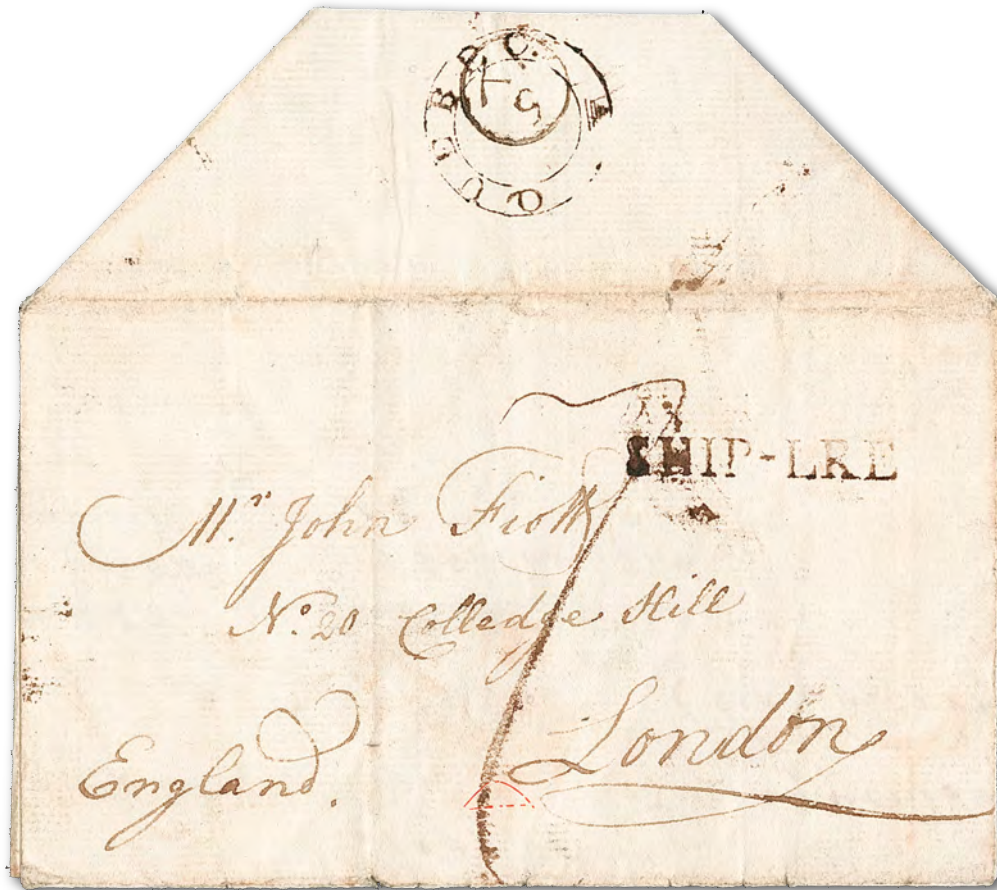 QUEBEC
SHIP-LRE
Mr. John Fiott
No. 20 Colledge Hill
London
England.